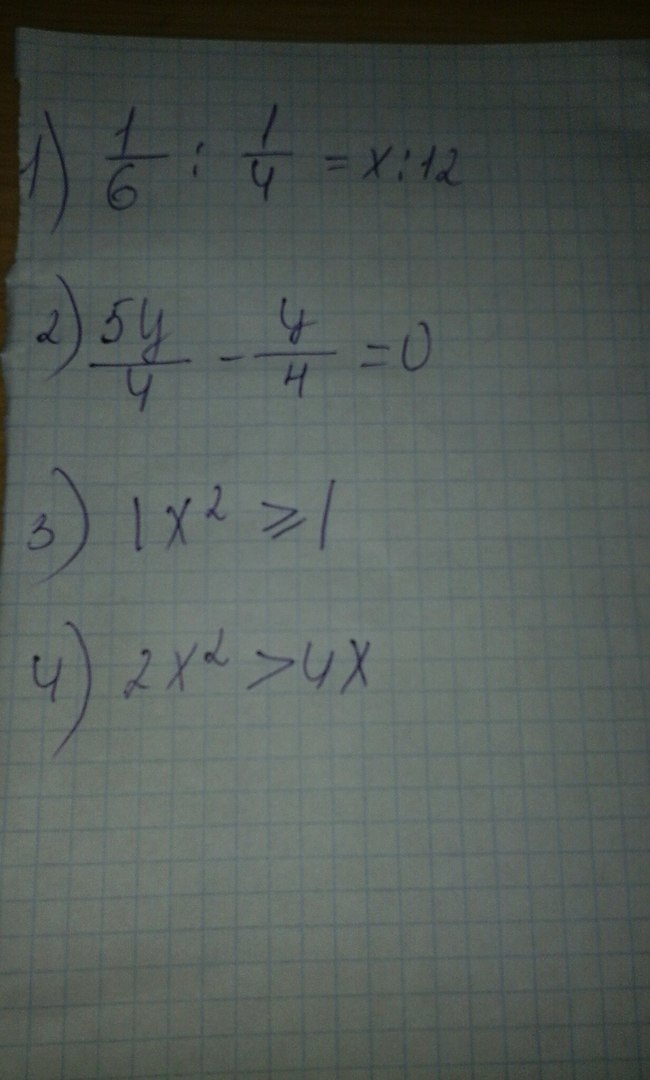 1) 1/6 : 1/4 = x:12
2) 5y/4 - y/4 = 0
3) 1x² ⩾ 1
4) 2x² > 4x